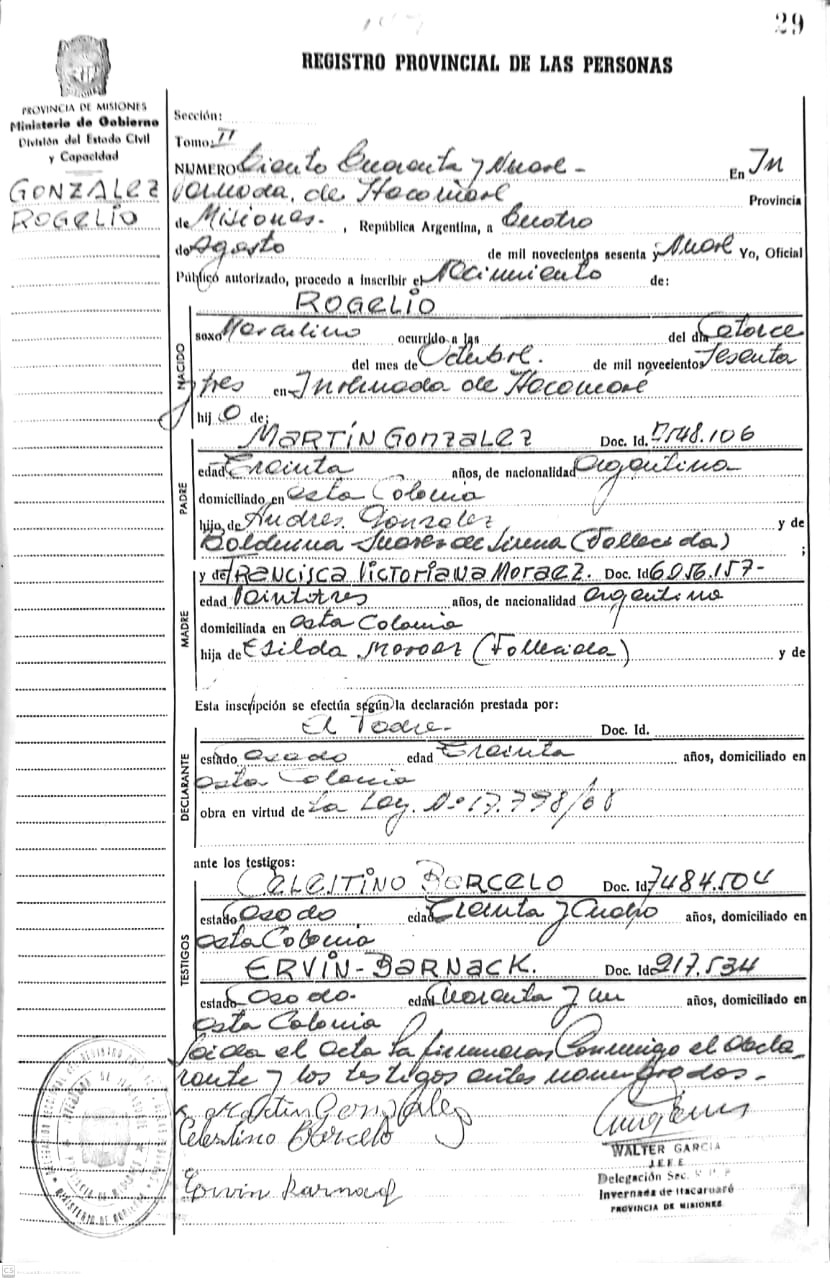 29
REGISTRO PROVINCIAL DE LAS PERSONAS
PROVINCIA DE MISIONES
Ministerio de Gobierno
División del Estado Civil
y Capacidad
GONZALEZ
ROGELIO
Sección:
Tomo: II
NUMERO Ciento Cuarenta y Nueve - En In
vernada de Itacaruaré Provincia
de Misiones. , República Argentina, a Cuatro
de Agosto de mil novecientos sesenta y Nueve Yo, Oficial
Público autorizado, procedo a inscribir el Nacimiento de:
ROGELIO
NACIDO
sexo Masculino ocurrido a las del día Catorce
del mes de Octubre. de mil novecientos Sesenta
y tres en Invernada de Itacaruaré
hij O de:
MARTÍN GONZALEZ Doc. Id. 7548.106
PADRE
edad Treinta años, de nacionalidad Argentina
domiciliado en esta Colonia
hijo de Andres Gonzalez y de
Suarez de (Fallecida) ;
y de FRANCISCA VICTORIANA MORAEZ. Doc. Id 6.056.157-
MADRE
edad Veintitres años, de nacionalidad argentina
domiciliada en esta Colonia
hija de Esilda Moraez (Fallecida) y de
Esta inscripción se efectúa según la declaración prestada por:
El Padre. Doc. Id.
DECLARANTE
estado Casado edad Treinta años, domiciliado en
esta Colonia
obra en virtud de La Ley. Nº 17.798/68
ante los testigos:
CELESTINO BARCELO Doc. Id 7484.504
TESTIGOS
estado Casado edad Treinta y años, domiciliado en
esta Colonia
ERVIN-BARNACK. Doc. Id 217.534
estado Casado. edad Cuarenta y un años, domiciliado en
esta Colonia
Leida el Acta la firmaron Conmigo el decla-
rante y los testigos antes nombrados.-
Martin Gonzalez
Celestino Barcelo
Ervin Barnack
WALTER GARCIA
JEFE
Delegación Sec.
Invernada de Itacaruaré
PROVINCIA DE MISIONES
CS